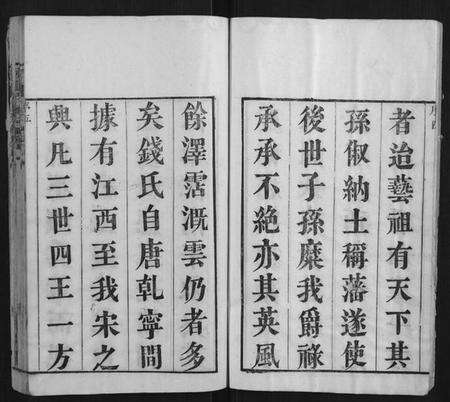 者迨藝祖有天下其
孫俶納土稱藩遂使
後世子孫縻我爵祿
承承不絕亦其英風
餘澤霑溉雲仍者多
矣錢氏自唐乹寧間
據有江西至我宋之
興凡三世四王一方